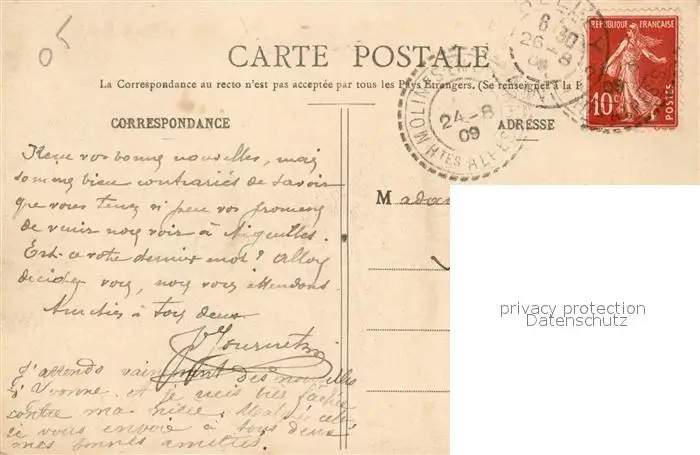 CARTE POSTALE
La Correspondance au recto n'est pas acceptée par tous les Pays Etrangers. (Se renseigner à la P
CORRESPONDANCE
ADRESSE
RÉPUBLIQUE FRANÇAISE
10c
POSTES
MOLINES
24-8
09
HTES ALPES
6 30
26-8
09
Reçu vos bonnes nouvelles, mais
sommes bien contrariés de savoir
que vous tenez si peu vos promesses
de venir nous voir à Aiguilles.
Est-ce votre dernier mot? Allons
décidez vous, nous vous attendons.
Amitiés à tous deux
J'attends vainement des nouvelles
d'Yvonne et je suis très fâchée
contre ma nièce. Malgré cela
je vous envoie à tous deux
mes bonnes amitiés.
Madam
privacy protection
Datenschutz